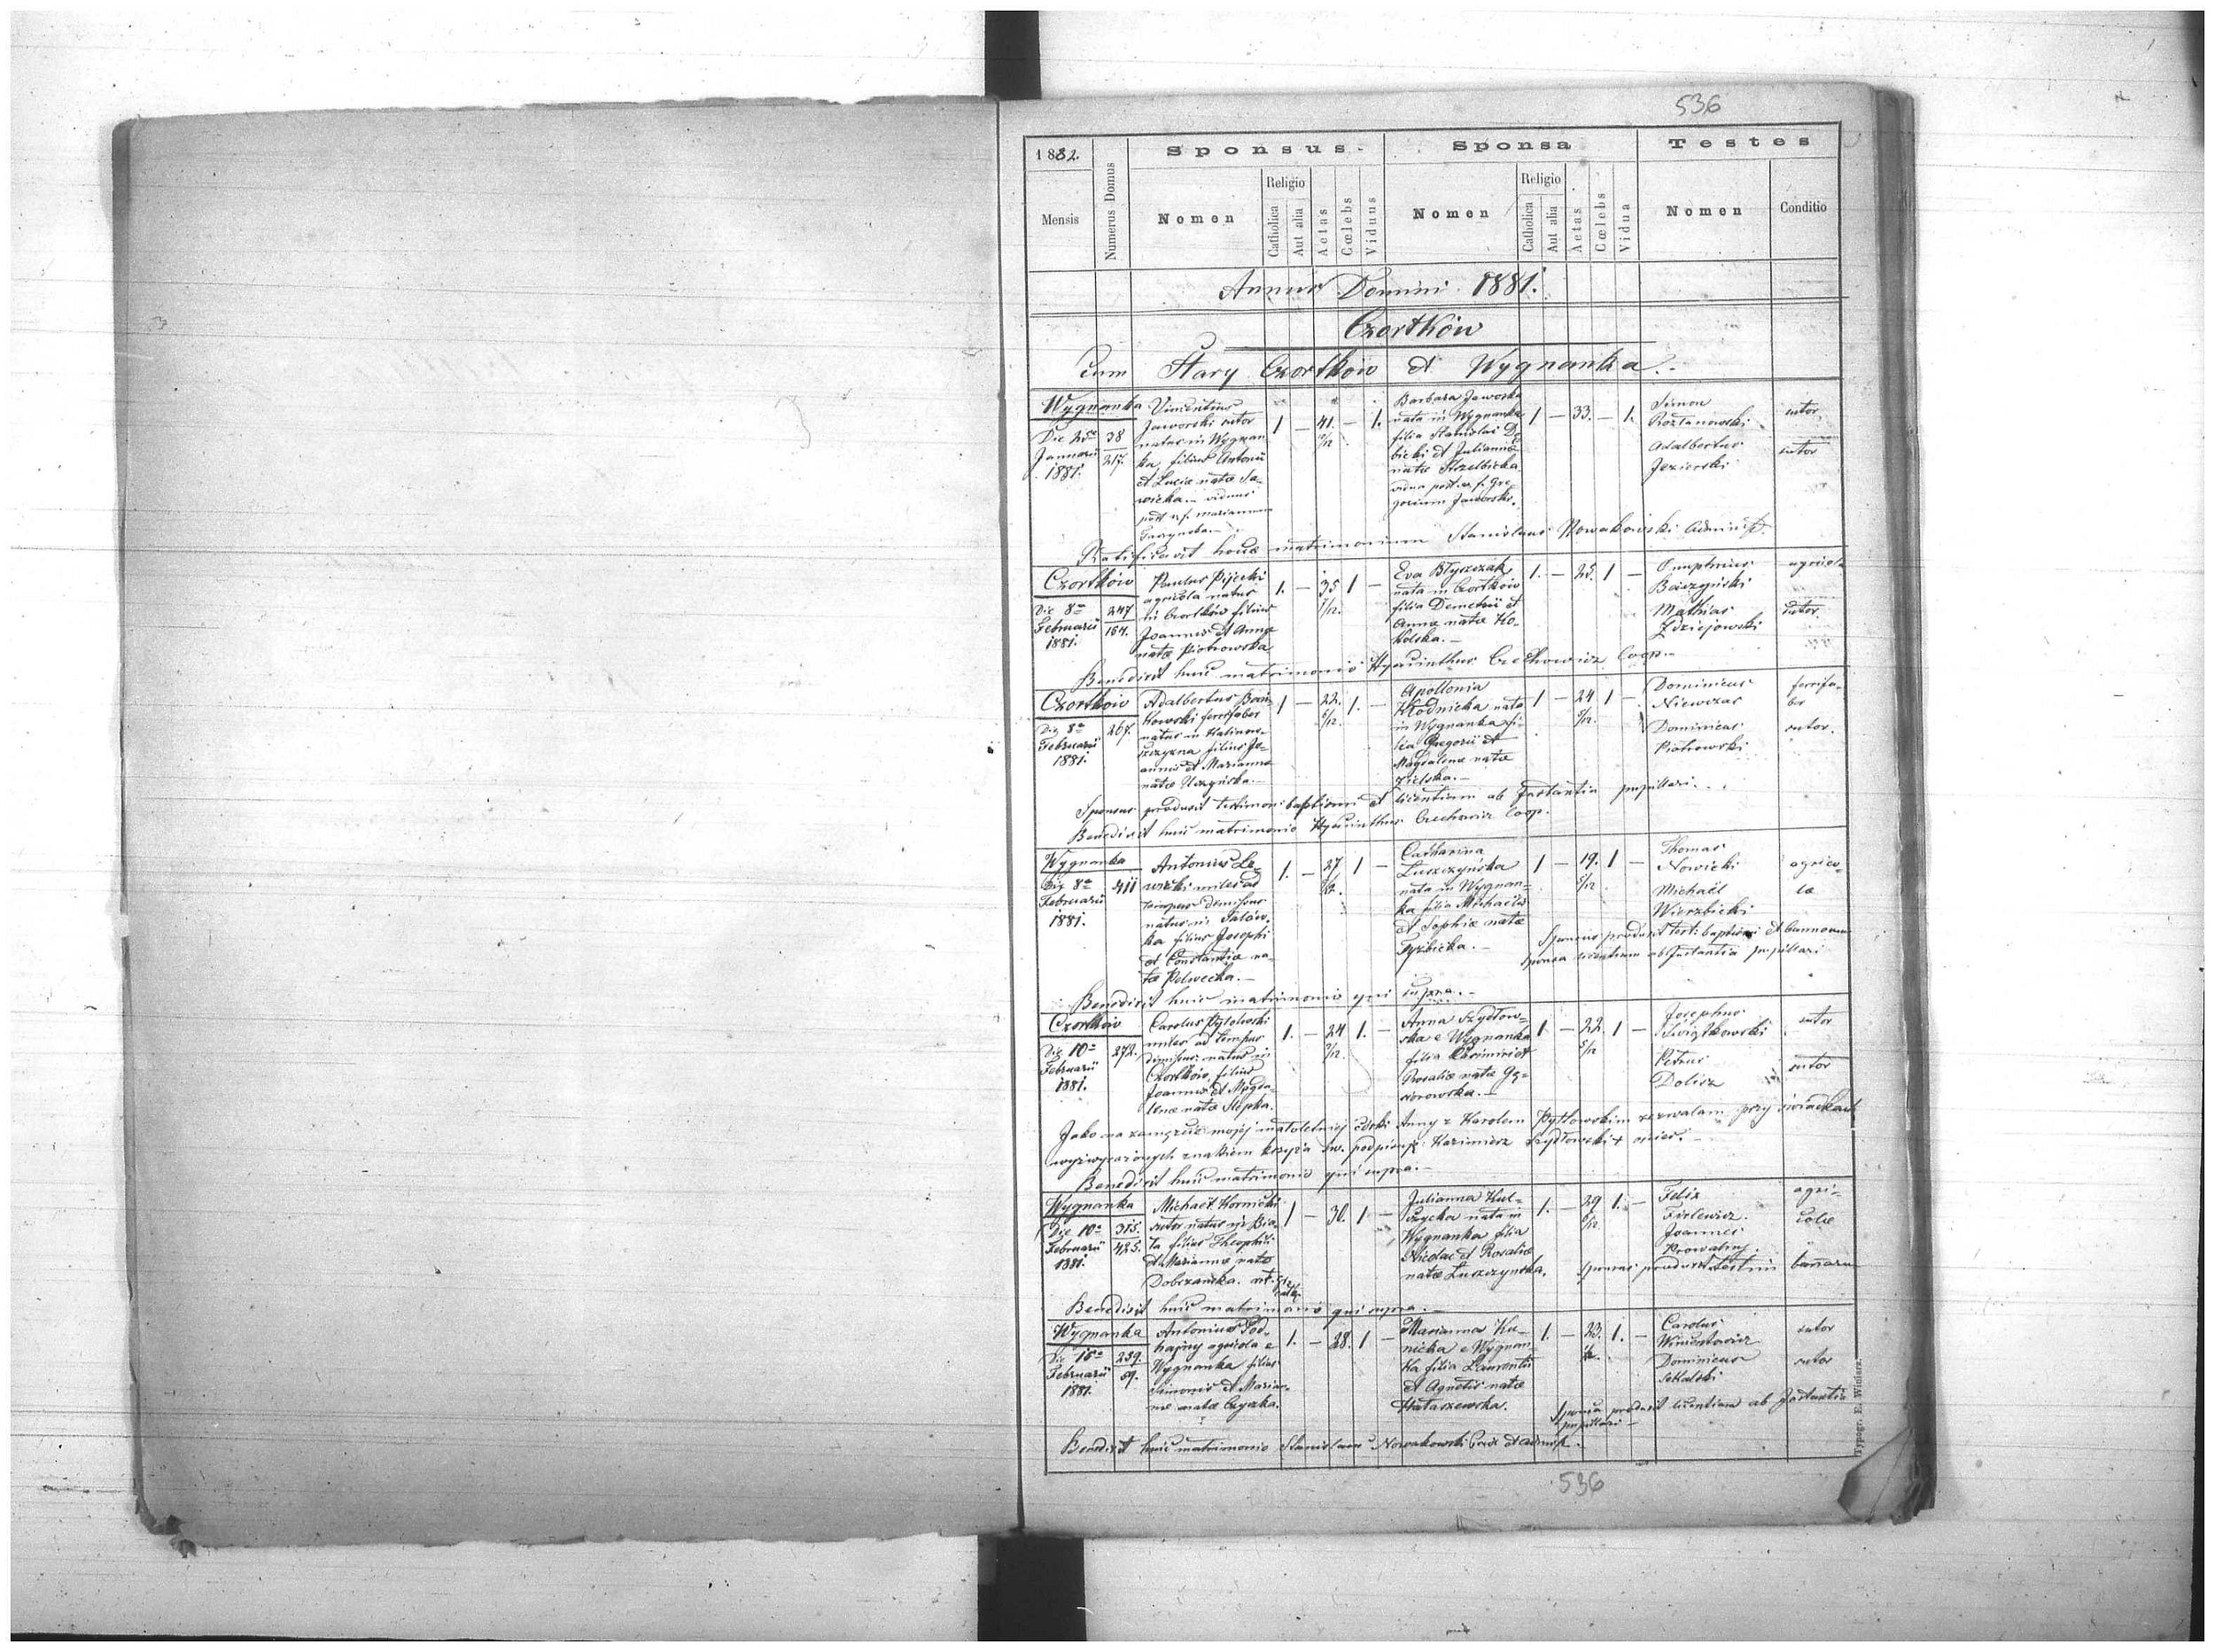 536
1882.
Sponsus.
Sponsa
Testes
Mensis
Numerus Domus
Nomen
Religio
Catholica
Aut alia
Aetas
Cœlebs
Viduus
Nomen
Religio
Catholica
Aut alia
Aetas
Cœlebs
Vidua
Nomen
Conditio
Annus Domini 1881.
Czortków
cum Stary Czortków et Wygnanka.
Wygnanka
Die 25a
Januarii
1881.
38
217.
Vincentius
Jaworski sutor
natus in Wygnan
ka, filius Antonii
et Luciæ natæ Sa-
wicka. viduus
post
Mariannam
1 — 41. — 1.
Barbara Jaworska
nata in Wygnanka
filia Stanislai
bicki et Juliannæ
natæ
vidua post Gre-
gorium Jaworski.
1 — 33. — 1.
Simon
Rozłanowski
Adalbertus
Jezierski
sutor
sutor
Ratificavit hocce matrimonium Stanislaus Nowakowski Administr.
Czortków
Die 8a
Februarii
1881.
247
164.
Paulus Pijecki
agricola natus
in Czortków filius
Joannis et Annæ
natæ Piotrowska
1. — 35 1 —
Eva Błyszczak
nata in Czortków
filia Demetrii et
Annæ natæ Ko-
kolska.
1. — 25. 1 —
Onuphrius
Mathias
Zdziejowski
agricola
sutor.
Benedixit huic matrimonio Hyacinthus Czechowicz Coop.
Czortków
Die 8a
Februarii
1881.
267.
Adalbertus
kowski ferrifaber
natus in Kalinow-
szczyzna filius Jo-
annis et Mariannæ
natæ
1 — 22. 1. —
Apollonia
Kłodnicka nata
in Wygnanka fi-
lia Gregorii et
Magdalenæ natæ
Zielska.
1 — 24 1 —
Dominicus
Niewczas
Dominicus
Piotrowski
ferrifa-
ber
sutor.
Sponsus produxit testimon: baptismi et licentiam ab Instantia pupillari.
Benedixit huic matrimonio Hyacinthus Czechowicz Coop.
Wygnanka
Die 8a
Februarii
1881.
411
Antonius Le-
miles ad
tempus dimissus
natus in
ka filius Josephi
et Constantiæ na-
tæ
1. — 27 1 —
Catharina
Luszczyńska
nata in Wygnan-
ka filia Michaëlis
et Sophiæ natæ
1 — 19. 1 —
Thomas
Nowicki
Michaël
Wierzbicki
agrico-
læ
Sponsus produxit testi: baptismi et bannorum
Sponsa licentiam ab Instantia pupillari
Benedixit huic matrimonio qui supra.
Czortków
Die 10a
Februarii
1881.
272.
Carolus Pytlowski
miles ad tempus
dimissus natus in
Czortków, filius
Joannis et Magda-
lenæ natæ Slopka.
1. — 24 1. —
Anna Szydłow-
ska e Wygnanka
filia Casimiri et
Rosaliæ natæ Gą-
siorowska.
1. — 22. 1 —
Josephus
Świątkowski
Petrus
Dolisz
sutor
sutor
Jako na zamęście mojej małoletniej córki Anny z Karolem Pytlowskim zezwalam przy świadkach
wyżwyrażonych znakiem krzyża św. podpisuję: Kazimierz Szydłowski + ojciec.
Benedixit huic matrimonio qui supra.
Wygnanka
Die 10a
Februarii
1881.
315.
425.
Michaël Kornicki
sutor natus in Bia-
ła filius Theophili
et Mariannæ natæ
Dobrzańska.
1 — 30. 1 —
Julianna Kul-
czycka nata in
Wygnanka filia
Nicolai et Rosaliæ
natæ Luszczyńska.
1. — 29 1. —
Felix
Firlewicz
Joannes
agri-
colæ
Sponsus produxit testim bannorum
Benedixit huic matrimonio qui supra.
Wygnanka
Die 15a
Februarii
1881.
239.
59.
Antonius Pod-
hajny agricola e
Wygnanka filius
Simonis et Marian-
næ natæ Czyzka.
1. — 28. 1 —
Marianna Ku-
nicka e Wygnan-
ka filia Laurentii
et Agnetis natæ
Hałaszewska.
1. — 23. 1. —
Carolus
Wincentowicz
Dominicus
Sokalski
sutor
sutor
Sponsa produxit licentiam ab Instantia
pupillari
Benedixit huic matrimonio Stanislaus Nowakowski et Adminstr.
Typogr. E. Winiarz.
536